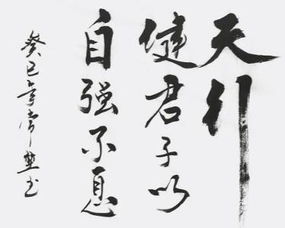 天行
健君子以
自强不息
癸巳年
书